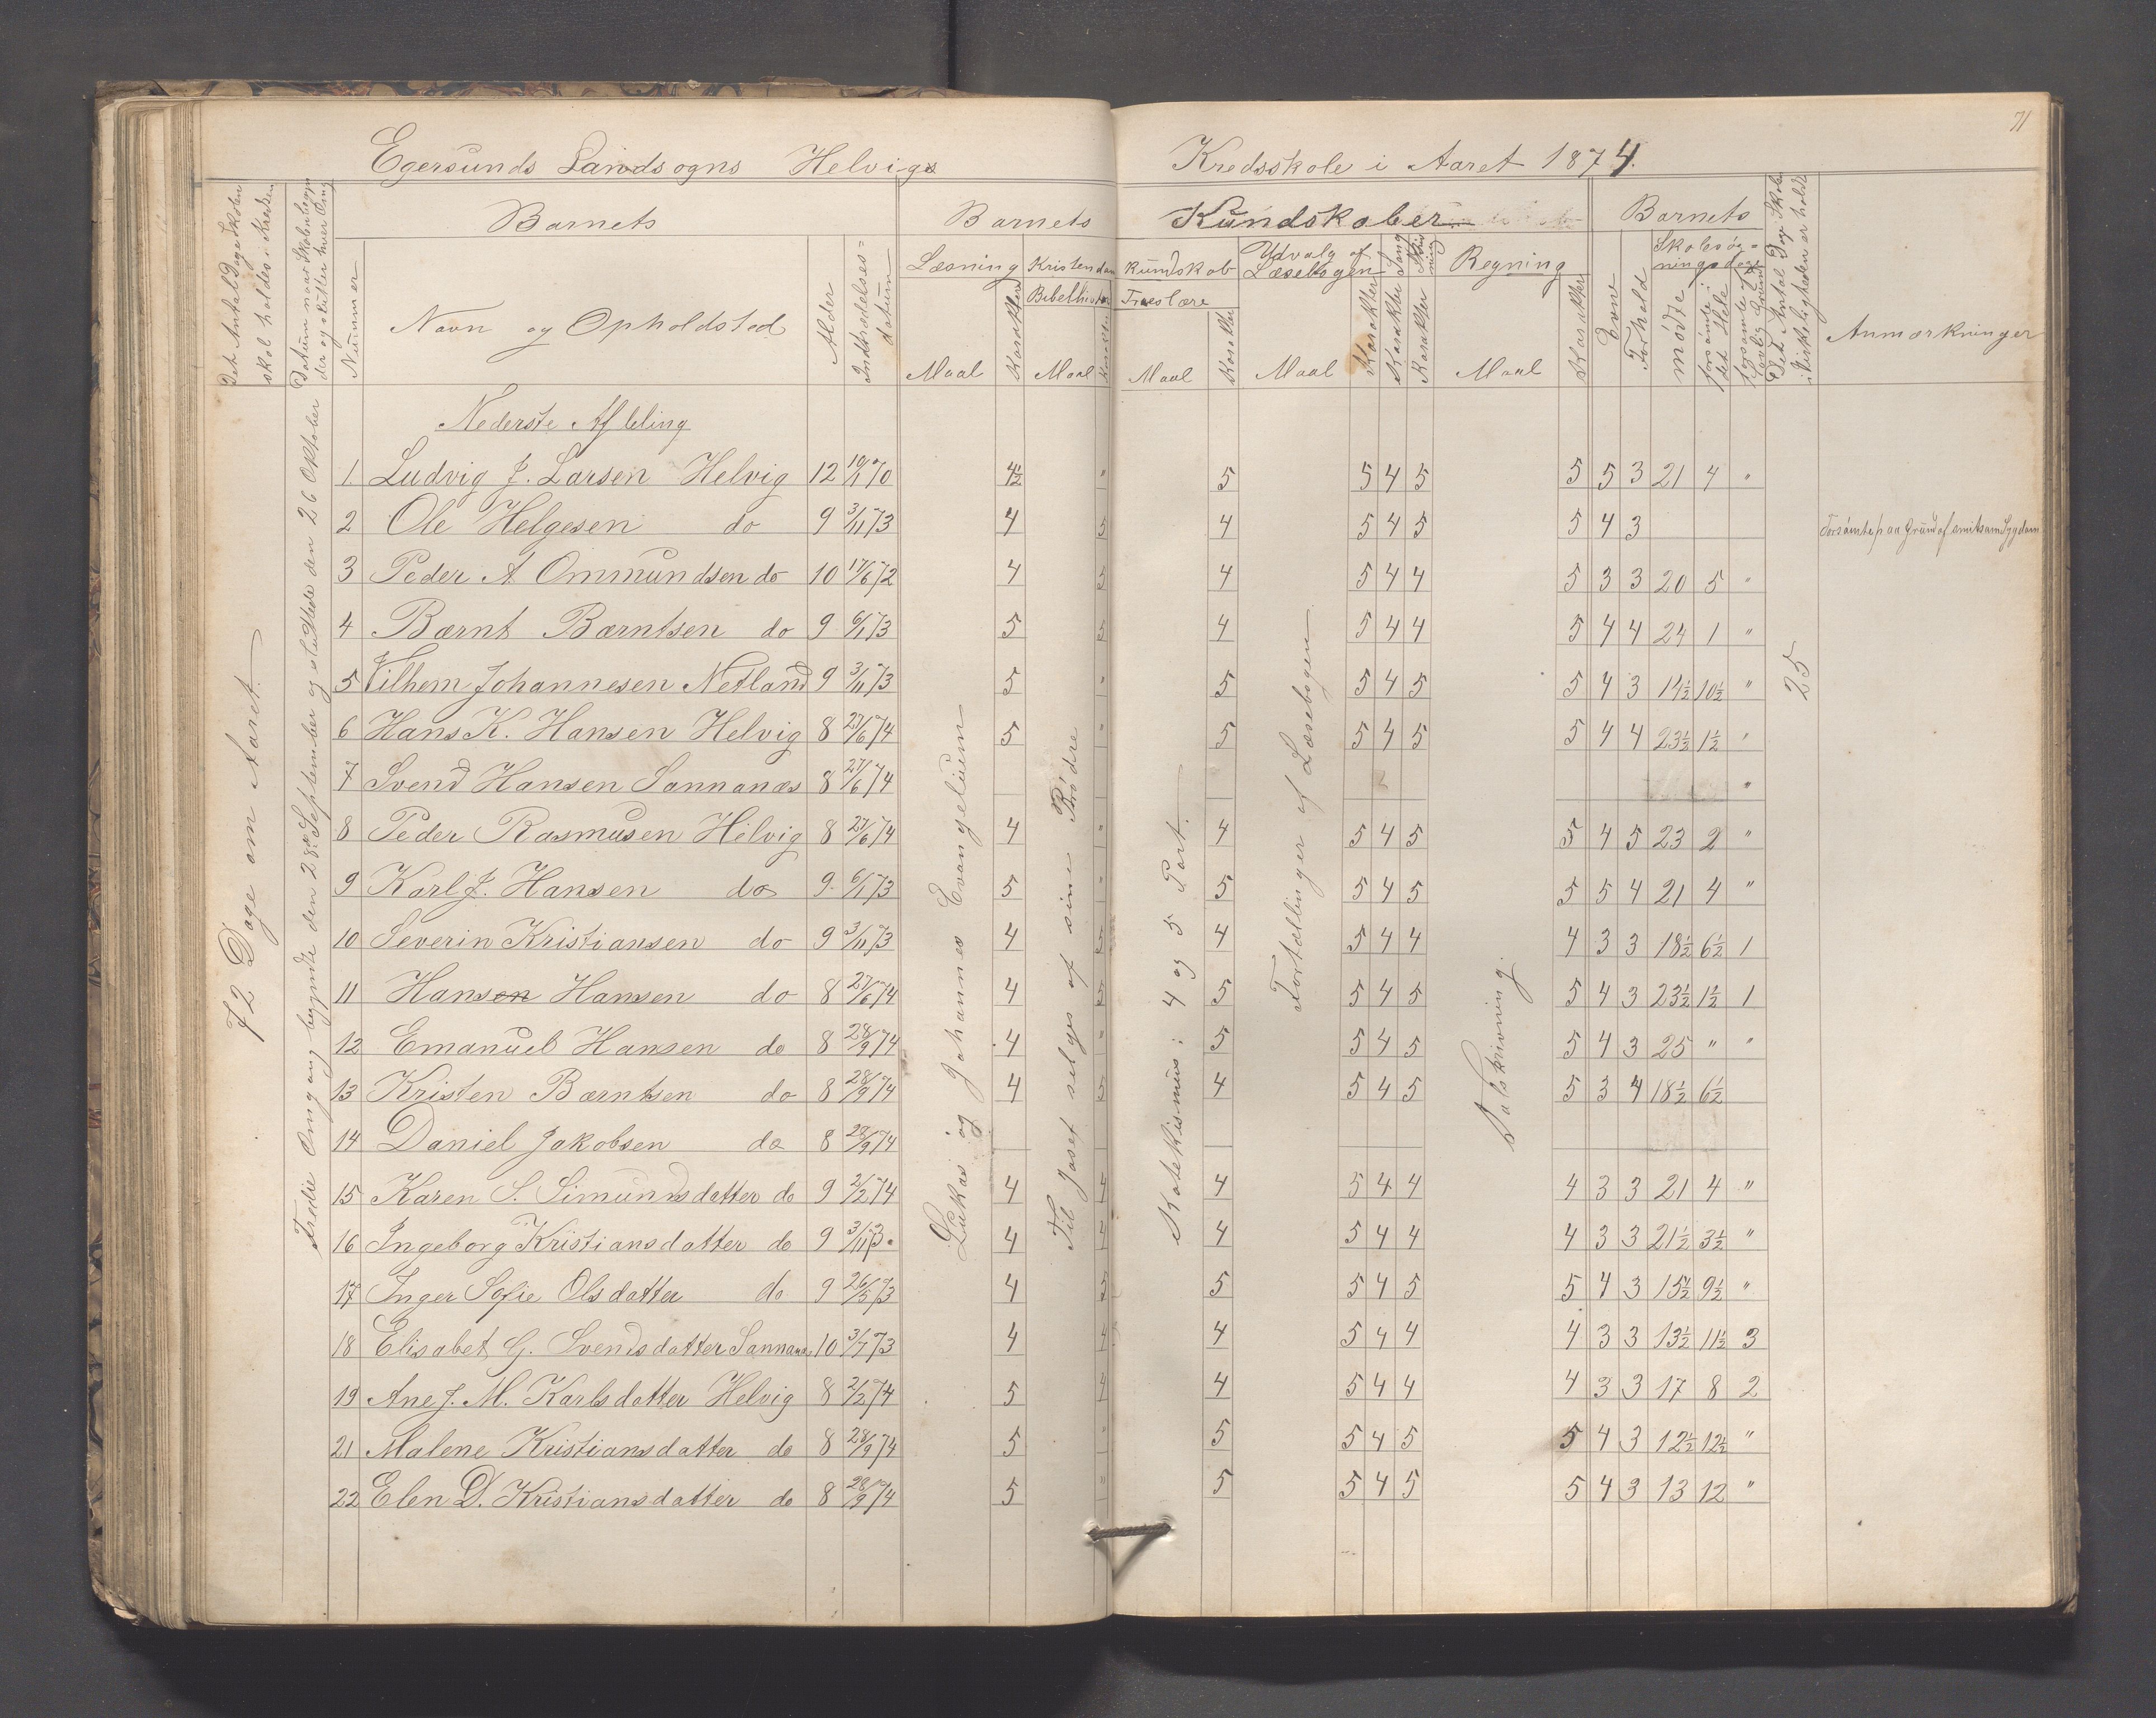 71
Egersunds Landsogns Helvigs Kredsskole i Aaret 1874.
Det Antal Dage Skolen skal holdes i Kredsen
Datum naar Skolen begynder og slutter hver Omg
Barnets
Barnets Kundskaber
Barnets
Nummer
Navn og Opholdsted
Alder
Indtrædelses-datum
Læsning
Kristendomskundskab
Udvalg af Læsebogen
Sang
Skrivning
Regning
Evne
Forhold
Skolesøgningsdage
Bibelhistorie
Troeslære
Maal Karakter Maal Karakter Maal Karakter Maal Karakter Karakter Karakter Maal Karakter
mødte
forsømte i det Hele
forsømte af Lovlig Grund
Det Antal Dage Skolen i Virkeligheden er holdt
Anmærkninger
72 Dage om Aaret.
Tredie Omgang begyndte den 28de September og sluttede den 26 Oktober
Lukas og Johannes Evangelium
Til Josef selges af sine Brødre
Katekismus: 4 og 5 Part.
Fortællinger af Læsebogen
Talskrivning.
25
Nederste Afdeling
1 Ludvig J. Larsen Helvig 12 10/1 70 4½ " 5 5 4 5 5 5 3 21 4 "
2 Ole Helgesen do 9 3/11 73 4 5 4 5 4 5 5 4 3 Forsømte paa Grund af smitsom Sygdom
3 Peder A Ommundsen do 10 17/6 72 4 5 4 5 4 4 5 3 3 20 5 "
4 Bærnt Bærntsen do 9 6/1 73 5 5 4 5 4 4 5 4 4 24 1 "
5 Vilhem Johannesen Netland 9 3/11 73 5 " 5 5 4 5 5 4 3 14½ 10½ "
6 Hans K. Hansen Helvig 8 27/6 74 5 " 5 5 4 5 5 4 4 23½ 1½ "
7 Svend Hansen Sannanæs 8 27/6 74 "
8 Peder Rasmusen Hilvig 8 27/6 74 4 " 4 5 4 5 5 4 5 23 2 "
9 Karl J. Hansen do 9 6/1 73 5 " 5 5 4 5 5 5 4 21 4 "
10 Severin Kristiansen do 9 3/11 73 4 5 4 5 4 4 4 3 3 18½ 6½ 1
11 Hans Hansen do 8 27/6 74 4 5 5 5 4 5 5 4 3 23½ 1½ 1
12 Emanuel Hansen do 8 28/9 74 4 " 5 5 4 5 5 4 3 25 " "
13 Kristen Bærntsen do 8 28/9 74 4 5 4 5 4 5 5 3 4 18½ 6½
14 Daniel Jakobsen do 8 28/9 74
15 Karen S. Simundsdatter do 9 2/2 74 4 4 4 5 4 4 4 3 3 21 4 "
16 Ingeborg Kristiansdatter do 9 3/11 73 4 4 4 5 4 4 4 3 3 21½ 3½ "
17 Inger Sofie Olsdatter do 9 26/5 73 4 5 5 5 4 5 5 4 3 15½ 9½ "
18 Elisabet G. Svendsdatter Sannanæs 10 3/7 73 4 4 4 5 4 4 4 3 3 13½ 11½ 3
19 Ane J. M. Karlsdatter Helvig 8 2/2 74 5 4 4 5 4 4 4 3 3 17 8 2
21 Malene Kristiansdatter do 8 28/9 74 5 " 5 5 4 5 5 4 3 12½ 12½ "
22 Elen D. Kristiansdatter do 8 28/9 74 5 " 5 5 4 5 5 4 3 13 12 "